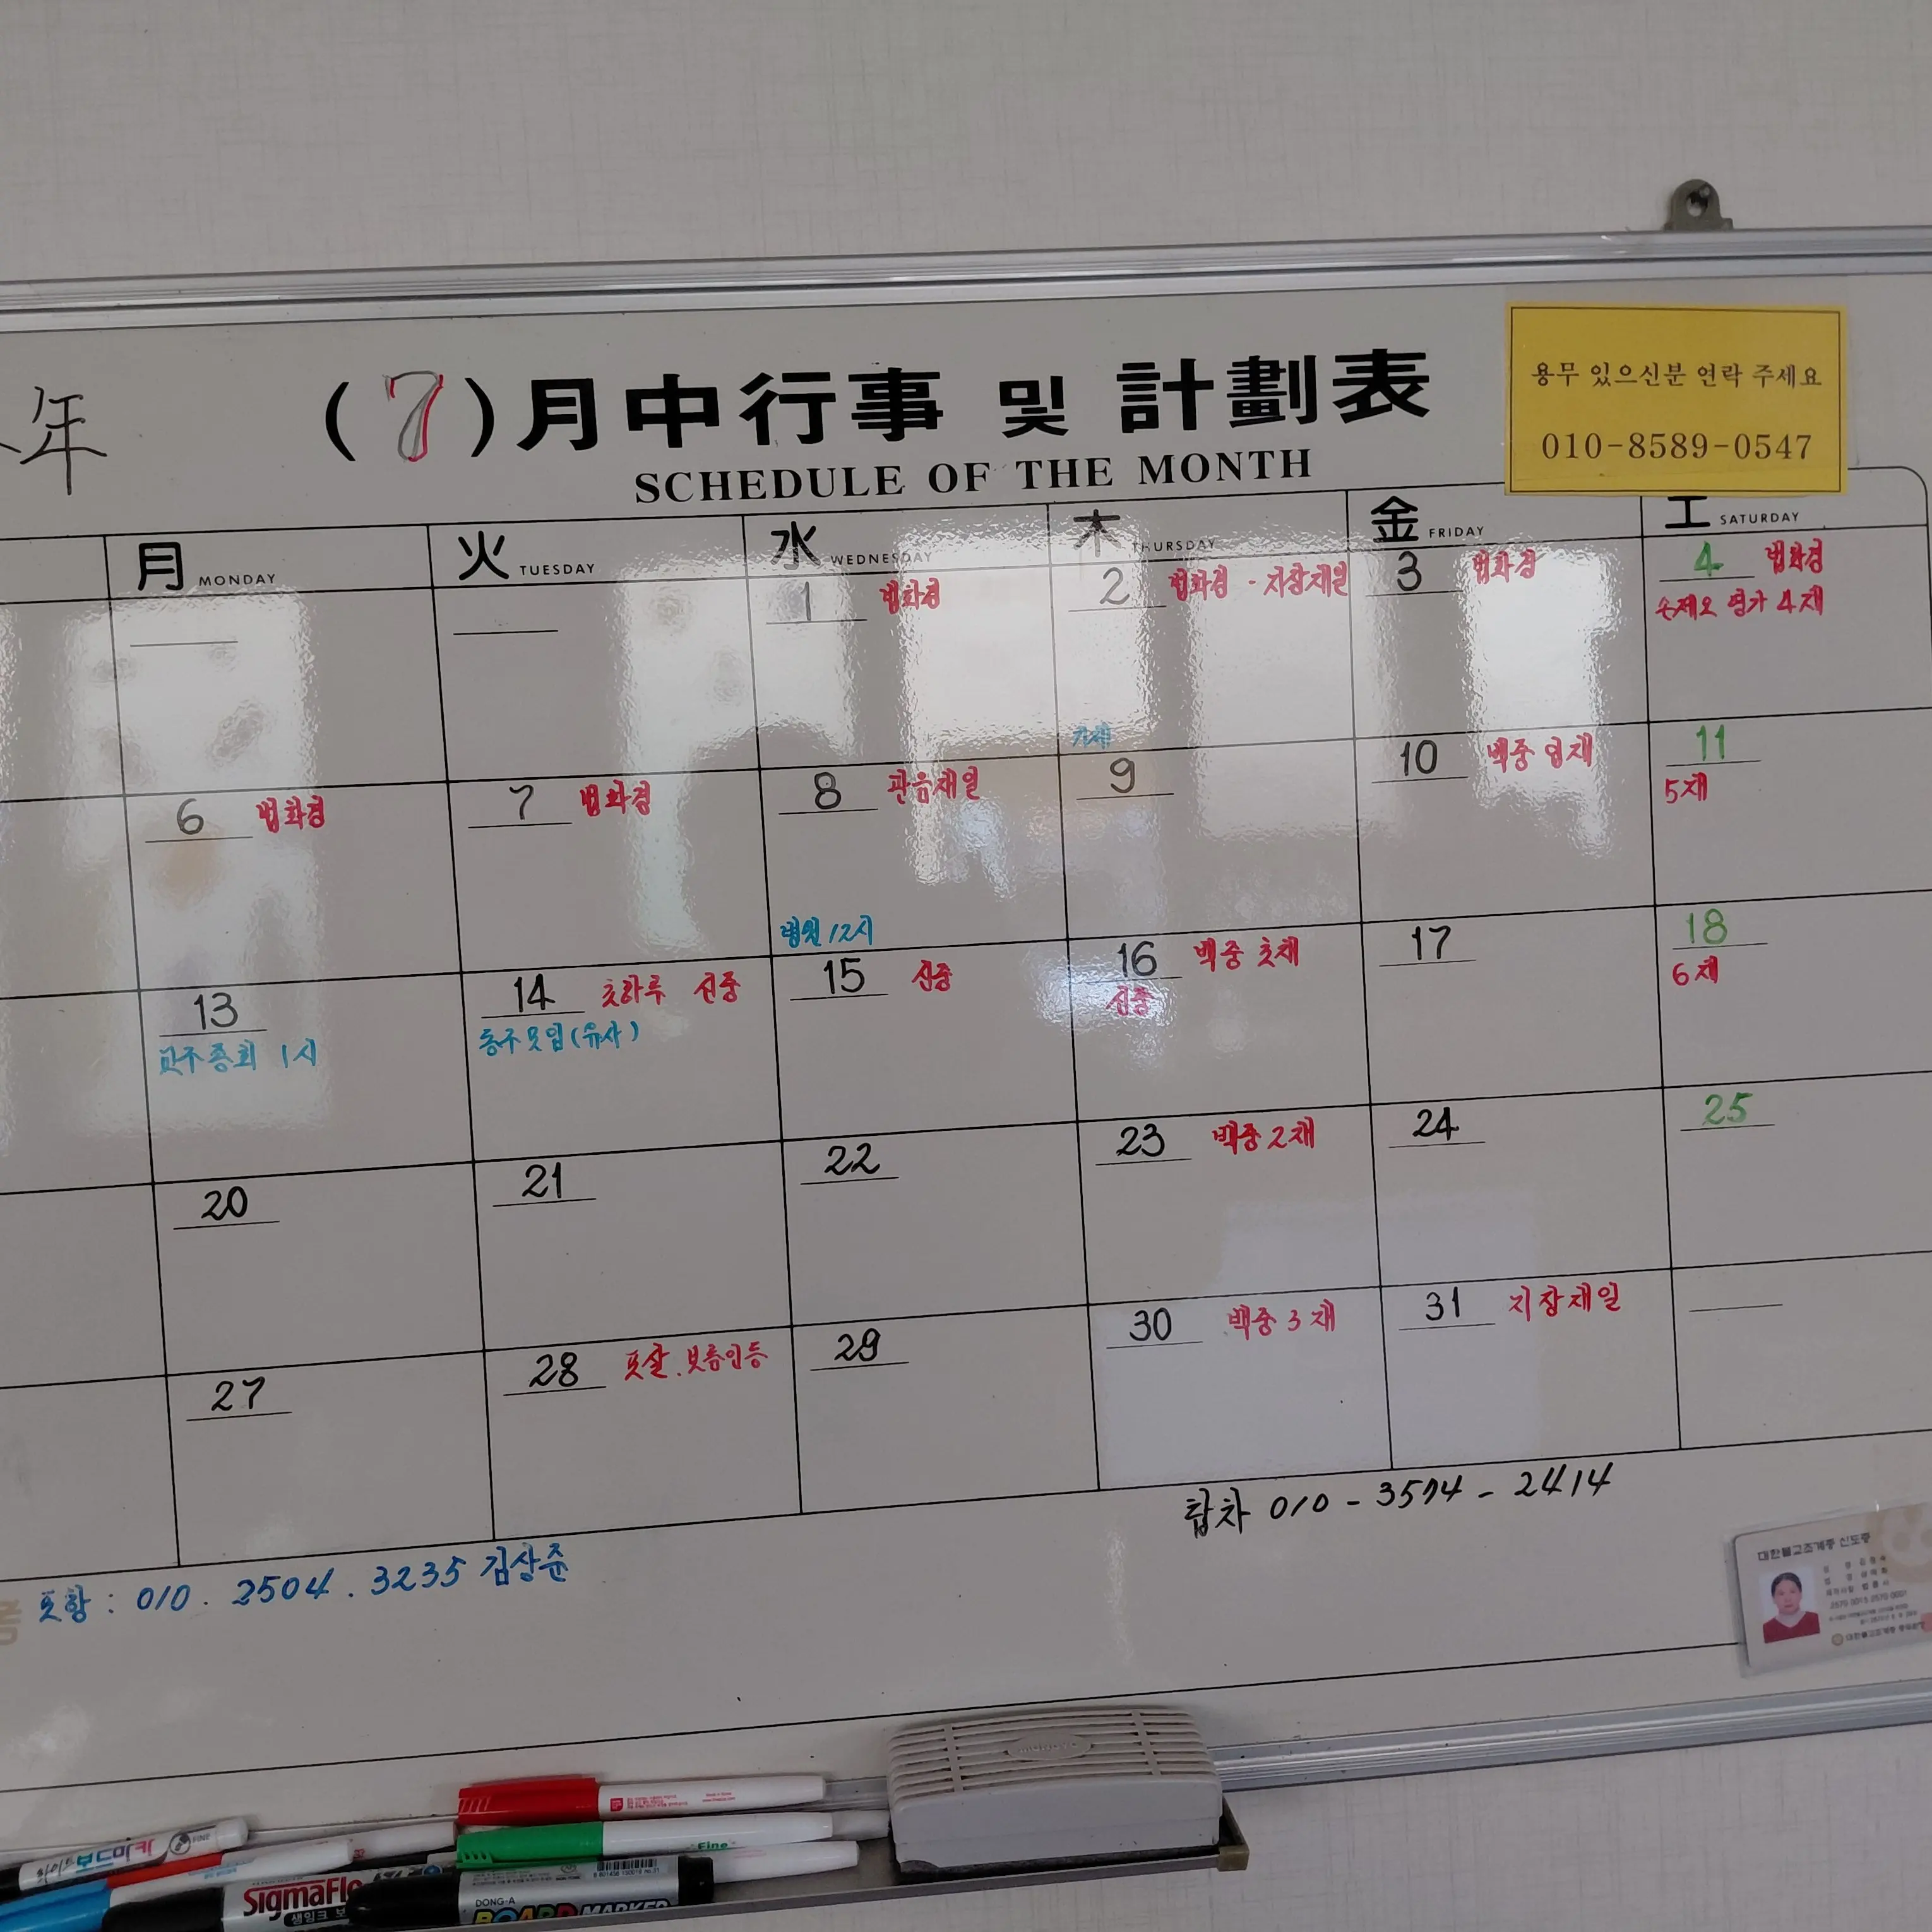 年
(7)月中行事 및 計劃表
SCHEDULE OF THE MONTH
용무 있으신분 연락 주세요
010-8589-0547
月 MONDAY
火 TUESDAY
水 WEDNESDAY
木 THURSDAY
金 FRIDAY
土 SATURDAY
1 법화경
2 법화경 - 지장재일
3 법화경
4 법화경
손제오 영가 4재
6 법화경
7 법화경
8 관음재일
병원 12시
9
10 백중 입재
11
5재
13
교주총회 1시
14 초하루 신중
동주모임(유사)
15 신중
16 백중 초재
신중
17
18
6재
20
21
22
23 백중 2재
24
25
27
28 포살. 보름인등
29
30 백중 3재
31 지장재일
탑차 010-3574-2414
포항: 010. 2504. 3235 김상준
대한불교조계종 신도증
화이트보드마카
FINE
Fine
SigmaFlo
생잉크 보
DONG-A
BOARD MARKER